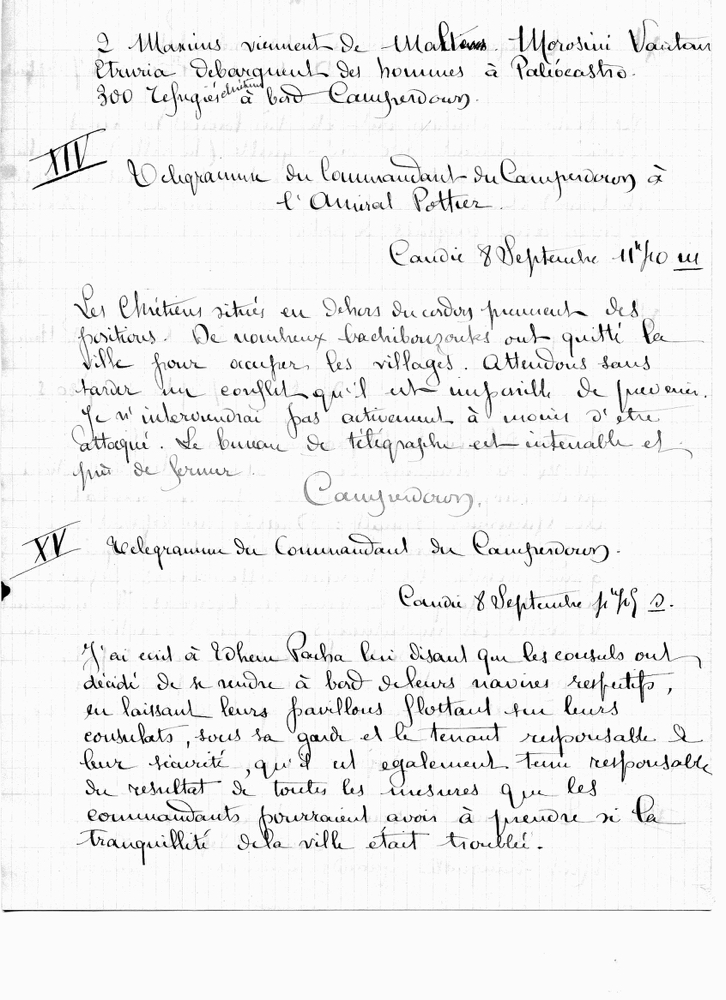 2 Maxims viennent de Malte. Morosini Vautour
Etruria debarquent des hommes à Paliócastro.
300 refugiés chrétiens à bord Camperdown.
XIV
Telegramme du Commandant du Camperdown à
l'Amiral Pottier.
Candie 8 Septembre 11h40 m
Les Chrétiens situés en dehors du cordon prennent des
positions. De nombreux bachibouzouks ont quitté la
ville pour occuper les villages. Attendons sans
tarder un conflit qu'il est impossible de prevenir.
Je n'interviendrai pas activement à moins d'être
attaqué. Le bureau de télégraphe est intenable et
prêt de fermer.
Camperdown.
XV
Telegramme du Commandant du Camperdown.
Candie 8 Septembre s.
J'ai ecrit à Edhem Pacha lui disant que les consuls ont
décidé de se rendre à bord de leurs navires respectifs,
en laissant leurs pavillons flottant sur leurs
consulats, sous sa garde et le tenant responsable de
leur sécurité, qu'il est egalement tenu responsable
du resultat de toutes les mesures que les
commandants pourraient avoir à prendre si la
tranquillité de la ville était troublée.